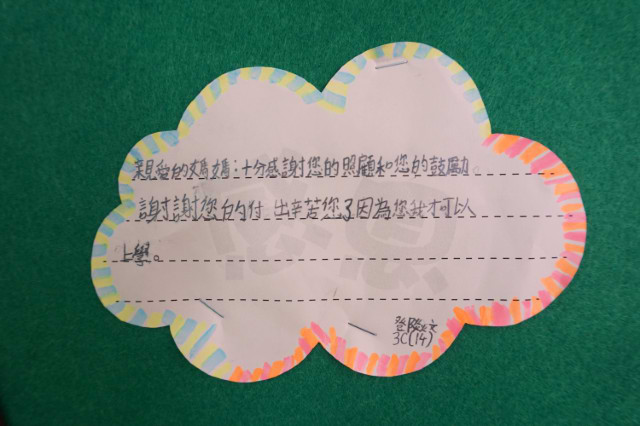 親愛的媽媽:十分感謝您的照顧和您的鼓勵。
謝謝您的付出辛苦您了因為您我才可以
上學。
感恩
3C(14)